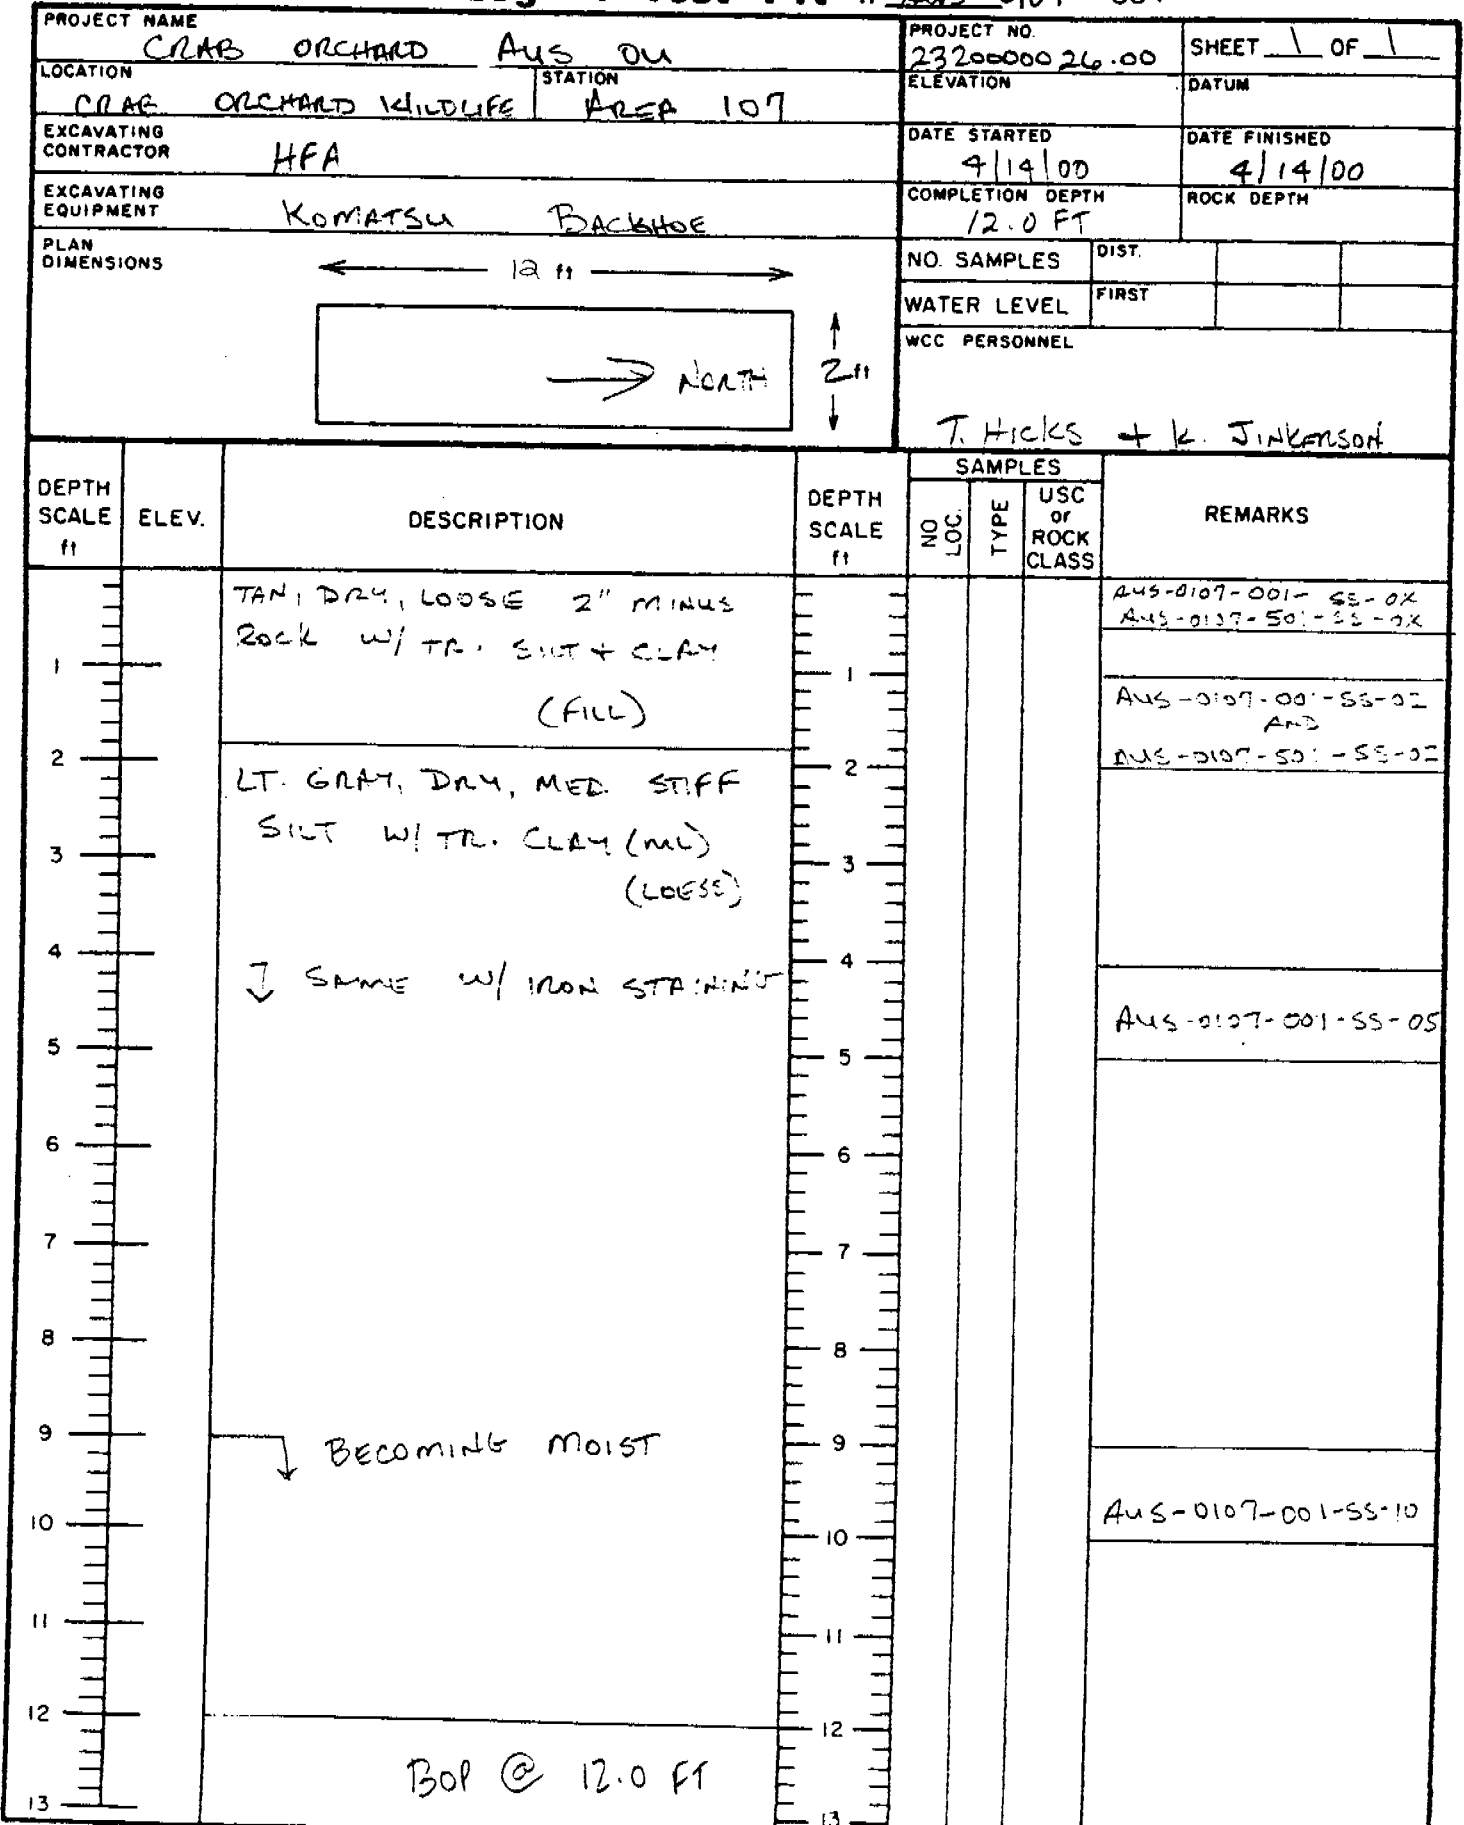 PROJECT NAME
CRAB ORCHARD AUS OU
PROJECT NO.
2320000026.00
SHEET 1 OF 1
LOCATION
CRAB ORCHARD WILDLIFE
STATION
AREA 107
ELEVATION
DATUM
EXCAVATING
CONTRACTOR
HFA
DATE STARTED
4/14/00
DATE FINISHED
4/14/00
EXCAVATING
EQUIPMENT
KOMATSU BACKHOE
COMPLETION DEPTH
12.0 FT
ROCK DEPTH
PLAN
DIMENSIONS
12 ft
NORTH
2 ft
NO. SAMPLES
DIST.
WATER LEVEL
FIRST
WCC PERSONNEL
T. HICKS + K. JINKERSON
DEPTH
SCALE
ft
ELEV.
DESCRIPTION
DEPTH
SCALE
ft
SAMPLES
NO
LOC.
TYPE
USC
or
ROCK
CLASS
REMARKS
TAN, DRY, LOOSE 2" MINUS
ROCK W/ TR. SILT + CLAY
(FILL)
LT. GRAY, DRY, MED. STIFF
SILT W/ TR. CLAY (ML)
(LOESS)
↓ SAME W/ IRON STAINING
BECOMING MOIST
BOP @ 12.0 FT
1
2
3
4
5
6
7
8
9
10
11
12
13
1
2
3
4
5
6
7
8
9
10
11
12
13
AUS-0107-001-SS-0X
AUS-0107-501-SS-0X
AUS-0107-001-SS-02
AND
AUS-0107-501-SS-02
AUS-0107-001-SS-05
AUS-0107-001-SS-10